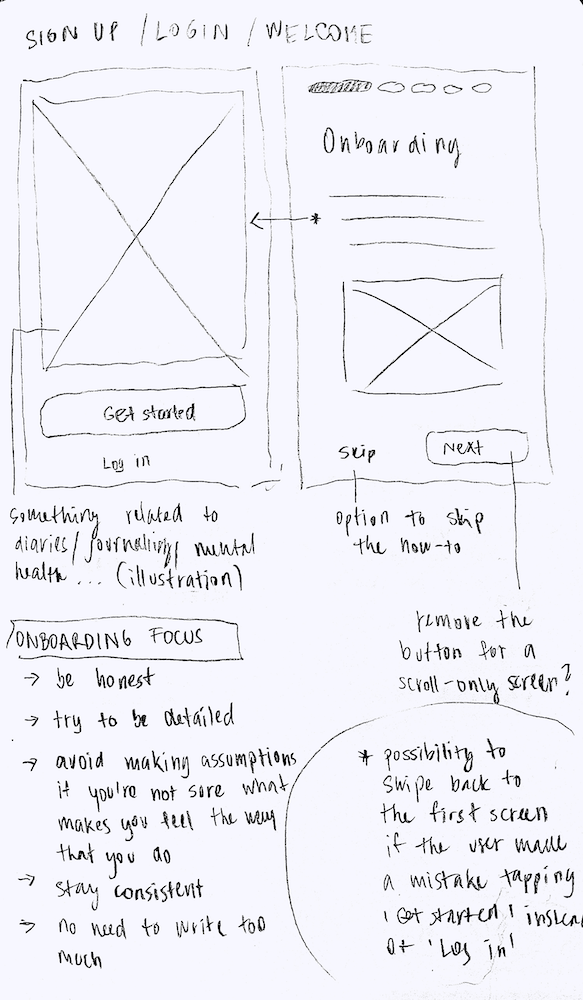 SIGN UP / LOGIN / WELCOME
Get started
Log in
Onboarding
Skip
Next
something related to
diaries/journaling, mental
health... (illustration)
option to skip
the how-to
remove the
button for a
scroll-only screen?
ONBOARDING FOCUS
→ be honest
→ try to be detailed
→ avoid making assumptions
if you're not sure what
makes you feel the way
that you do
→ stay consistent
→ no need to write too
much
* possibility to
swipe back to
the first screen
if the user made
a mistake tapping
'Get started' instea
of 'Log in'